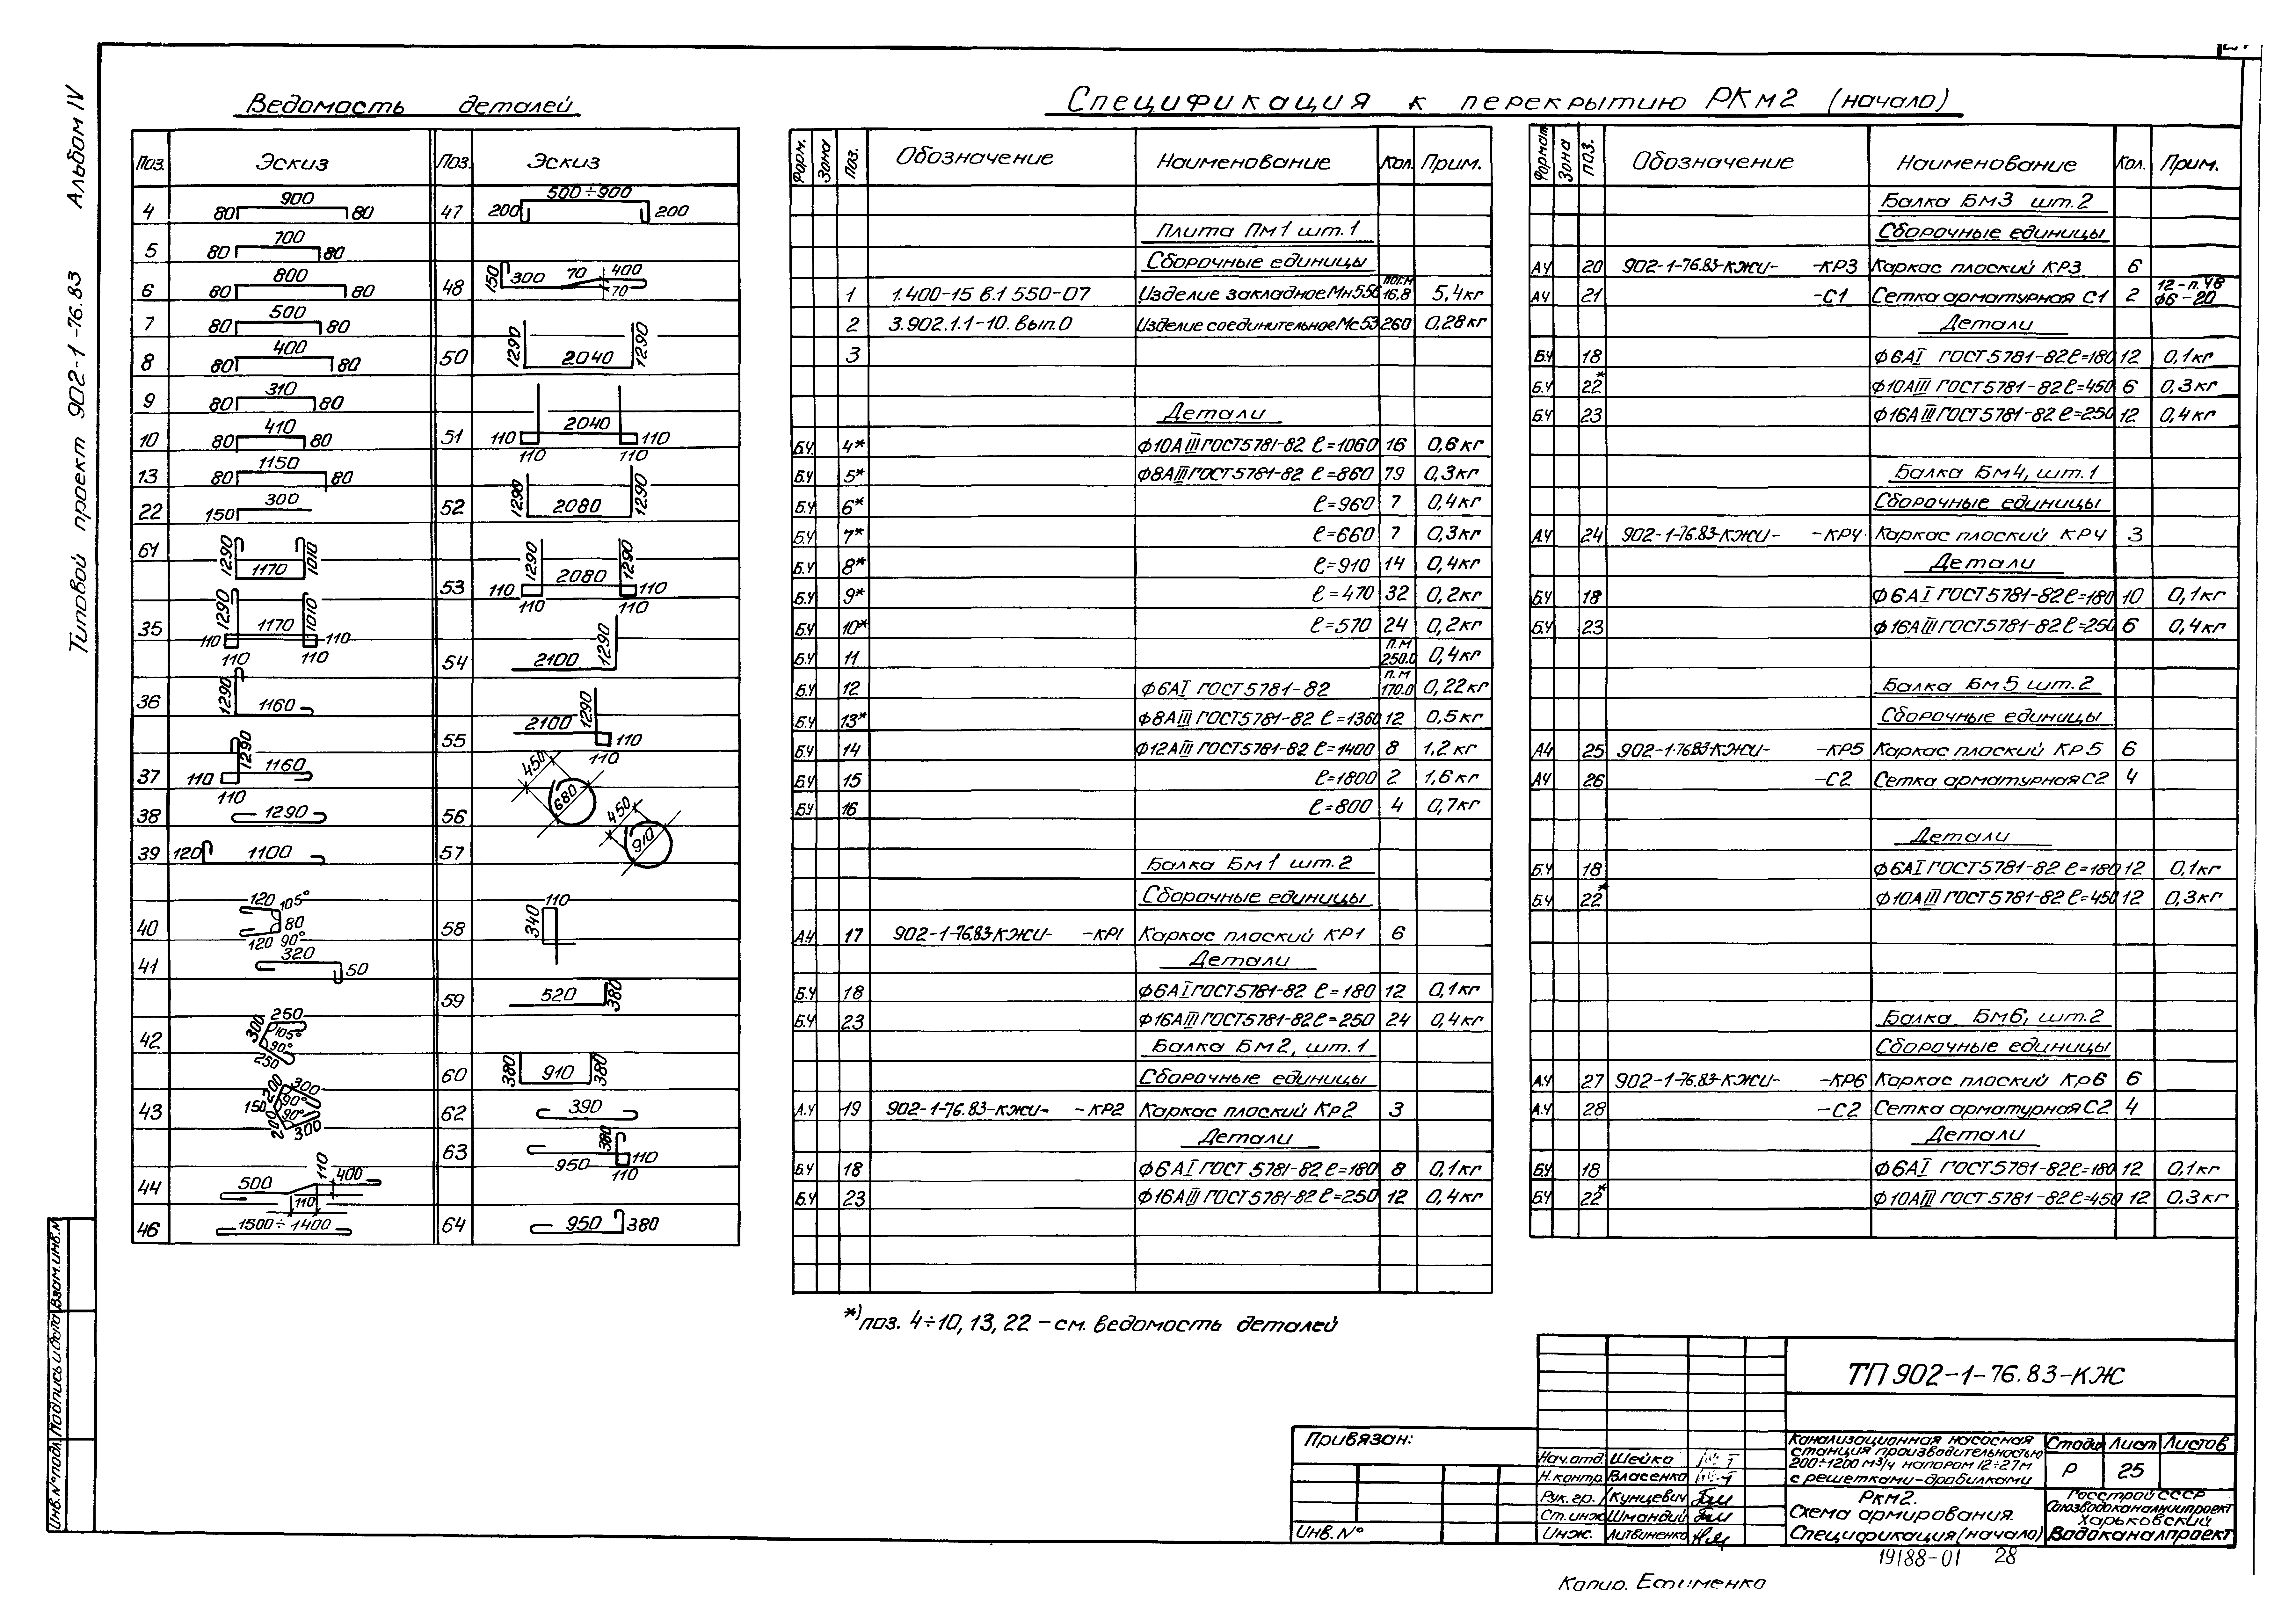 Альбом IV
Типовой проект 902-1-76.83
Ведомость деталей
Поз. Эскиз Поз. Эскиз
4 80 900 80
5 80 700 80
6 80 800 80
7 80 500 80
8 80 400 80
9 80 310 80
10 80 410 80
13 80 1150 80
22 150 300
61 1290 1170 1010
35 110 1290 1170 1010 110 110 110
36 1290 1160
37 110 1290 1160 110
38 1290
39 120 1100
40 120 105° 80 120 90°
41 320 50
42 250 300 105° 90° 250
43 200 300 90° 150 90° 200 300
44 500 110 400 110
46 1500÷1400
47 200 500÷900 200
48 150 300 70 400 70
50 1290 2040 1290
51 110 2040 110 110 110
52 1290 2080 1290
53 110 1290 2080 1290 110 110 110
54 2100 1290
55 2100 1290 110 110
56 450 680
57 450 910
58 110 340
59 520 380
60 380 910 380
62 390
63 380 950 110 110
64 950 380
Спецификация к перекрытию РКм2 (начало)
Форм. Зона Поз. Обозначение Наименование Кол. Прим.
Плита Пм1 шт.1
Сборочные единицы
1 1.400-15 в.1 550-07 Изделие закладное Мн556 пог.м 16.8 5,4кг
2 3.902.1.1-10. вып.0 Изделие соединительное Мс53 260 0,28кг
3
Детали
Б.Ч. 4* Ф10АIII ГОСТ5781-82 ℓ=1060 16 0,6кг
Б.Ч 5* Ф8АIII ГОСТ5781-82 ℓ=860 79 0,3кг
Б.Ч 6* ℓ=960 7 0,4кг
Б.Ч 7* ℓ=660 7 0,3кг
Б.Ч 8* ℓ=910 14 0,4кг
Б.Ч 9* ℓ=470 32 0,2кг
Б.Ч 10* ℓ=570 24 0,2кг
Б.Ч 11 п.м 250.0 0,4кг
Б.Ч 12 Ф6АI ГОСТ5781-82 п.м 170.0 0,22кг
Б.Ч 13* Ф8АIII ГОСТ5781-82 ℓ=1360 12 0,5кг
Б.Ч 14 Ф12АIII ГОСТ5781-82 ℓ=1400 8 1,2кг
Б.Ч 15 ℓ=1800 2 1,6кг
Б.Ч 16 ℓ=800 4 0,7кг
Балка Бм1 шт.2
Сборочные единицы
А.4 17 902-1-76.83-КЖИ- -КР1 Каркас плоский КР1 6
Детали
Б.Ч 18 Ф6АI ГОСТ5781-82 ℓ=180 12 0,1кг
Б.Ч 23 Ф16АIII ГОСТ5781-82 ℓ=250 24 0,4кг
Балка Бм2, шт.1
Сборочные единицы
А.Ч 19 902-1-76.83-КЖИ- -КР2 Каркас плоский Кр2 3
Детали
Б.Ч 18 Ф6АI ГОСТ 5781-82 ℓ=180 8 0,1кг
Б.Ч 23 Ф16АIII ГОСТ5781-82 ℓ=250 12 0,4кг
Формат Зона Поз. Обозначение Наименование Кол. Прим.
Балка Бм3 шт.2
Сборочные единицы
А4 20 902-1-76.83-КЖИ- -КР3 Каркас плоский КР3 6
А4 21 -С1 Сетка арматурная С1 2 12-п.48 ф6-20
Детали
Б.Ч 18 Ф6АI ГОСТ5781-82 ℓ=180 12 0,1кг
Б.Ч 22* Ф10АIII ГОСТ5781-82 ℓ=450 6 0,3кг
Б.Ч 23 Ф16АIII ГОСТ5781-82 ℓ=250 12 0,4кг
Балка Бм4, шт.1
Сборочные единицы
А.Ч 24 902-1-76.83-КЖИ- -КР4 Каркас плоский КР4 3
Детали
Б.Ч 18 Ф6АI ГОСТ5781-82 ℓ=180 10 0,1кг
Б.Ч 23 Ф16АIII ГОСТ5781-82 ℓ=250 6 0,4кг
Балка Бм5 шт.2
Сборочные единицы
А4 25 902-1-76.83-КЖИ- -КР5 Каркас плоский КР5 6
А4 26 -С2 Сетка арматурная С2 4
Детали
Б.Ч 18 Ф6АI ГОСТ5781-82 ℓ=180 12 0,1кг
Б.Ч 22* Ф10АIII ГОСТ5781-82 ℓ=450 12 0,3кг
Балка Бм6, шт.2
Сборочные единицы
А.Ч 27 902-1-76.83-КЖИ- -КР6 Каркас плоский Кр6 6
А.Ч 28 -С2 Сетка арматурная С2 4
Детали
Б.Ч 18 Ф6АI ГОСТ5781-82 ℓ=180 12 0,1кг
Б.Ч 22* Ф10АIII ГОСТ5781-82 ℓ=450 12 0,3кг
*) поз. 4÷10, 13, 22 – см. ведомость деталей
Привязан:
Инв. №
ТП 902-1-76.83-КЖ
Нач.отд. Шейко
Н.контр. Власенко
Рук. гр. Кунцевич
Ст. инж Шмандий
Инж. Литвиненко
Канализационная насосная
станция производительностью
200÷1200 м³/ч напором 12÷27м
с решетками-дробилками
Стадия Лист Листов
Р 25
Ркм2.
Схема армирования.
Спецификация (начало)
Госстрой СССР
Союзводоканалниипроект
Харьковский
Водоканалпроект
19188-01 28
Копир. Ефименко
Инв. № подл. Подпись и дата Взам. инв. №